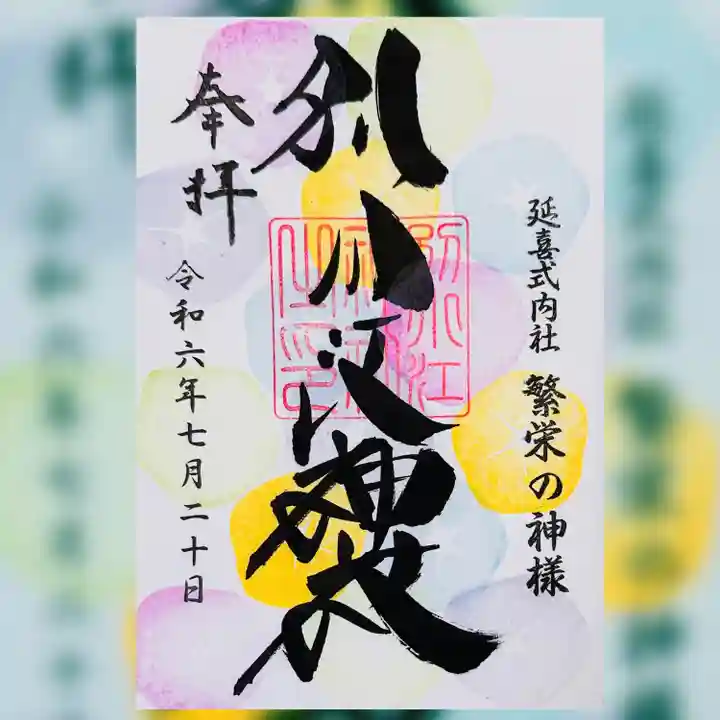 延喜式内社 繁栄の神様
別小江神社
奉拝
令和六年七月二十日